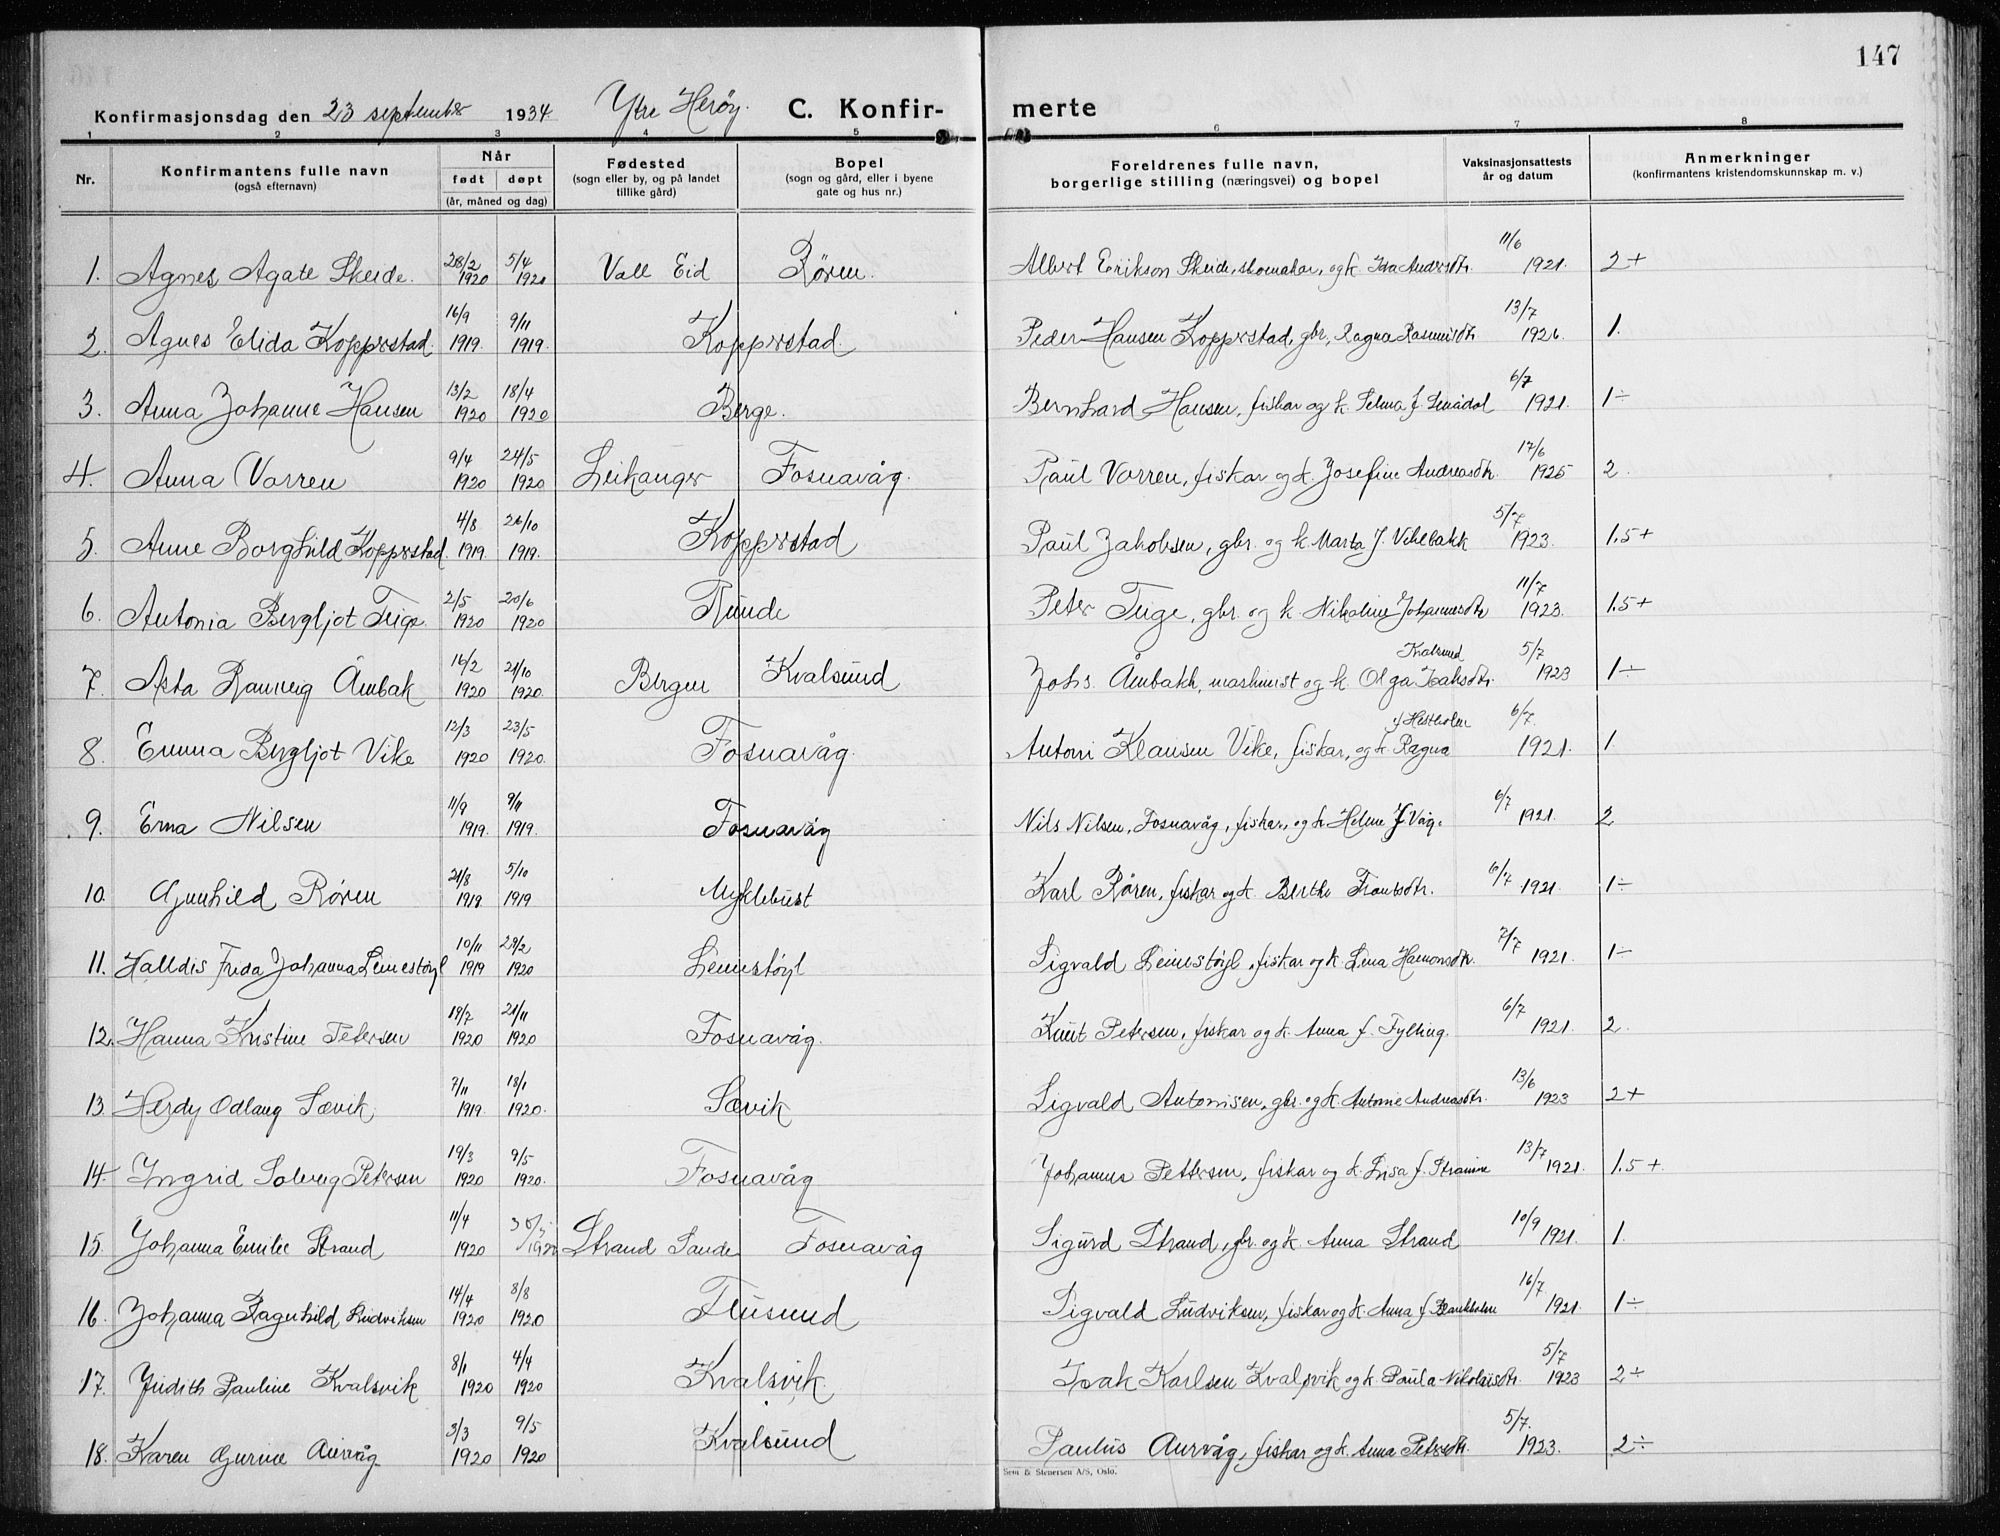 147
Konfirmasjonsdag den 23 september 1934 Ytre Herøy. C. Konfir- merte
1 2 3 4 5 6 7 8
Nr. Konfirmantens fulle navn (også efternavn) Når født døpt (år, måned og dag) Fødested (sogn eller by, og på landet tillike gård) Bopel (sogn og gård, eller i byene gate og hus nr.) Foreldrenes fulle navn, borgerlige stilling (næringsvei) og bopel Vaksinasjonsattests år og datum Anmerkninger (konfirmantens kristendomskunnskap m. v.)
1. Agnes Agate Skeide. 28/2 1920 5/4 1920 Vall Eid Røren. Albert Erikson Skeide, skomakar, og k. Ida Andersdtr. 11/6 1921. 2+
2. Agnes Elida Kopperstad. 16/9 1919. 9/11 1919. Kopperstad. Peder Hansen Kopperstad, gbr, Ragna Rasmusdtr 13/7 1926. 1.
3. Anna Johanne Hansen 13/2 1920 18/4 1920 Berge. Bernhard Hansen, fiskar og k. Selma f. Smådal 6/7 1921. 1÷
4. Anna Vorren 9/4 1920 24/5 1920 Leikanger Fosnavåg. Paul Vorren, fiskar og k. Josefine Andreasdtr. 17/6 1925 2.
5. Anne Borghild Kopperstad. 4/8 1919. 26/10 1919. Kopperstad Paul Jakobsen, gbr. og k. Marta J. Vikebakk 5/7 1923. 1.5+
6. Antonia Bergljot Teige. 2/5 1920 20/6 1920 Runde Peter Teige, gbr. og k. Nikoline Johannesdtr 11/7 1923. 1.5+
7. Asta Rannveig Åmbak 16/2 1920 21/10 1920. Bergen Kvalsund Johs. Åmbakk, maskinist og k. Olga Isaksdtr. Kvalsund 5/7 1923 1÷
8. Emma Bergljot Vike 12/3 1920 23/5 1920. Fosnavåg. Antoni Klausen Vike, fiskar, og k. Ragna f. Hestholm 6/7. 1921. 1.
9. Erna Nilsen 11/9 1919. 9/11 1919. Fosnavåg Nils Nilsen, Fosnavåg, fiskar, og k. Helene J. Våg. 6/7 1921. 2
10. Gunhild Røren 21/8 1919. 5/10 1919 Myklebust Karl Røren, fiskar og k. Berthe Frantsdtr. 6/7 1921. 1÷
11. Halldis Frida Johanna Leinestøyl 10/11 1919 29/2 1920 Leinestøyl Sigvald Leinestøyl, fiskar og k. Lena Hamonsdtr. 7/7 1921. 1÷
12. Hanna Kristine Petersen 19/7 1920 21/11 1920 Fosnavåg. Knut Petersen, fiskar og k. Anna f. Tylling. 6/7 1921. 2.
13. Herdy Odlaug Sævik 7/11 1919. 18/1 1920. Sævik Sigvald Antonisen, gbr. og k. Antonie Andreasdtr. 13/6 1923 2+
14. Ingrid Solveig Petersen 19/3 1920 9/5 1920. Fosnavåg Johannes Pettersen, fiskar og k. Lisa f. 13/7 1921. 1.5+.
15. Johanna Emilie Strand 11/4 1920 Strand Sande Fosnavåg Sigurd Strand, gbr. og k. Anna Strand 10/9 1921. 1.
16. Johanna Ragnhild Ludviksen 14/4 1920 8/8 1920 Flusund Sigvald Ludviksen, fiskar og k. Anna f. 16/7 1921. 1÷
17. Judith Pauline Kvalsvik 8/1 1920 4/4 1920 Kvalsvik Isak Karlsen Kvalsvik og k. Paula Nikolaisdtr. 5/7 1923 2÷
18. Karen Gurine Aurvåg 3/3 1920 9/5 1920 Kvalsund Paulus Aurvåg, fiskar og k. Anna Petersdtr. 5/7. 1923. 2÷
Sem & Stenersen A/S, Oslo.